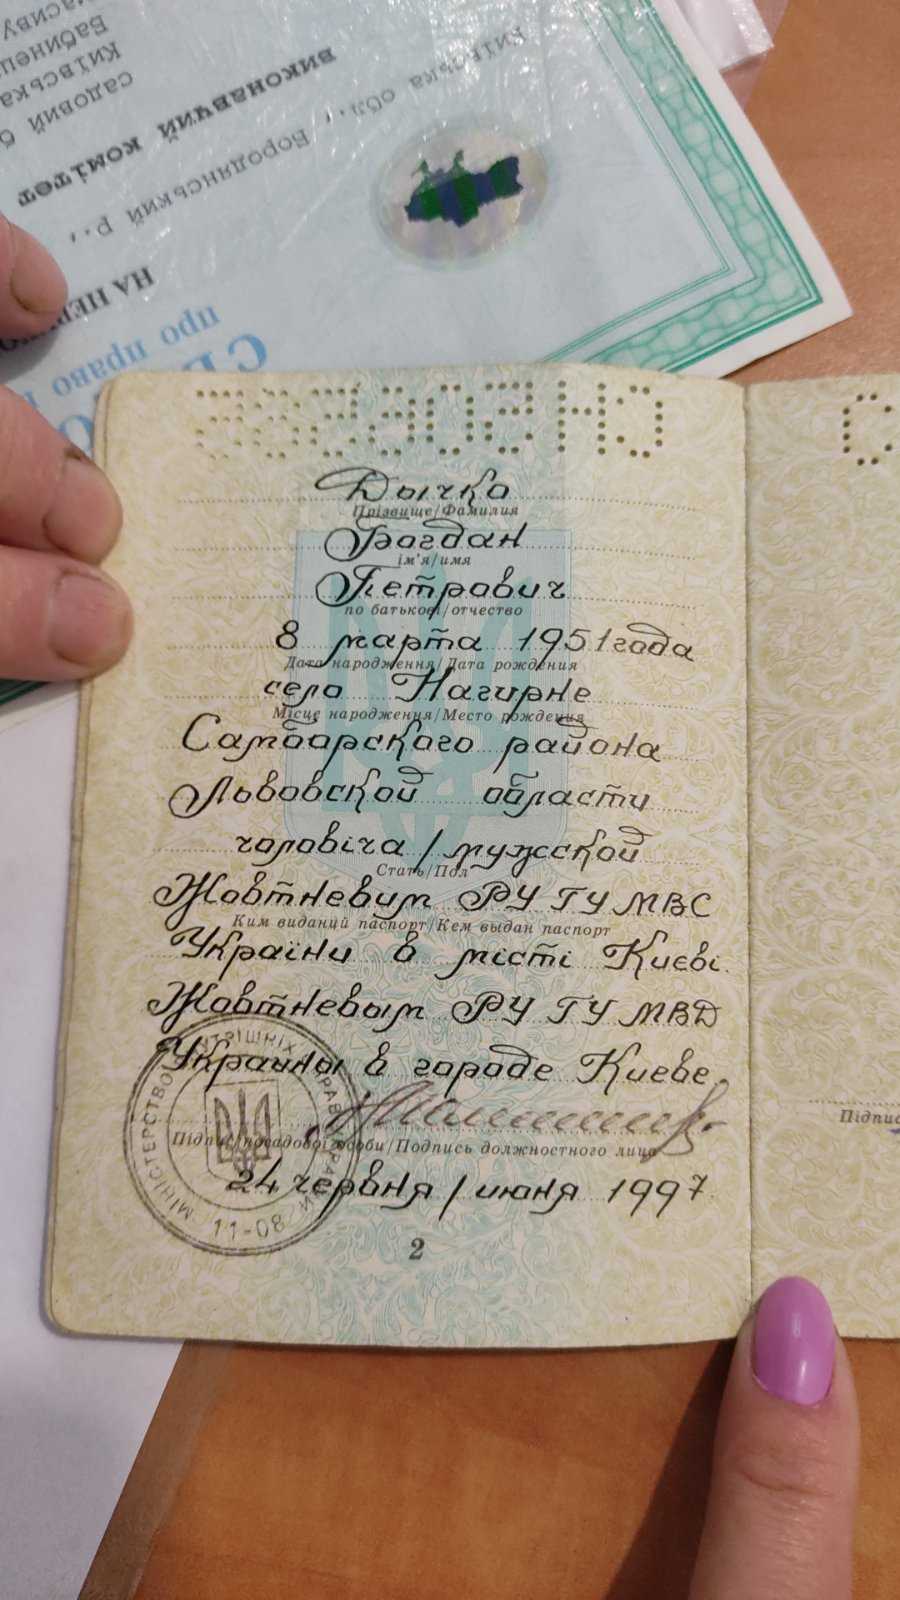 садовий
Київська
Бабинец
масиву
виконавчий комітет
Київська обл., Бородянський р.,
НА
про право
Дычко
Прізвище/Фамилия
Богдан
ім'я/имя
Петрович
по батькові/отчество
8 марта 1951 года
Дата народження/Дата рождения
село Нагирне
Місце народження/Место рождения
Самборского района
Львовской области
чоловіча/мужской
Стать/Пол
Жовтневим РУ ГУ МВС
Ким виданий паспорт/Кем выдан паспорт
України в місті Києві.
Жовтневым РУ ГУ МВД
Украины в городе Киеве.
Підпис посадової особи/Подпись должностного лица
24 червня/июня 1997
МІНІСТЕРСТВО ВНУТРІШНІХ СПРАВ УКРАЇНИ
11-08
2
Підпис